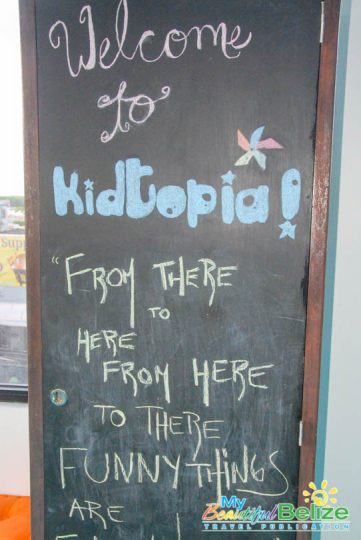 Welcome
to
Kidtopia!
"FROM THERE
TO
HERE
FROM HERE
TO THERE
FUNNY THINGS
ARE
Sup
My
Beautiful Belize
TRAVEL PUBLICATION